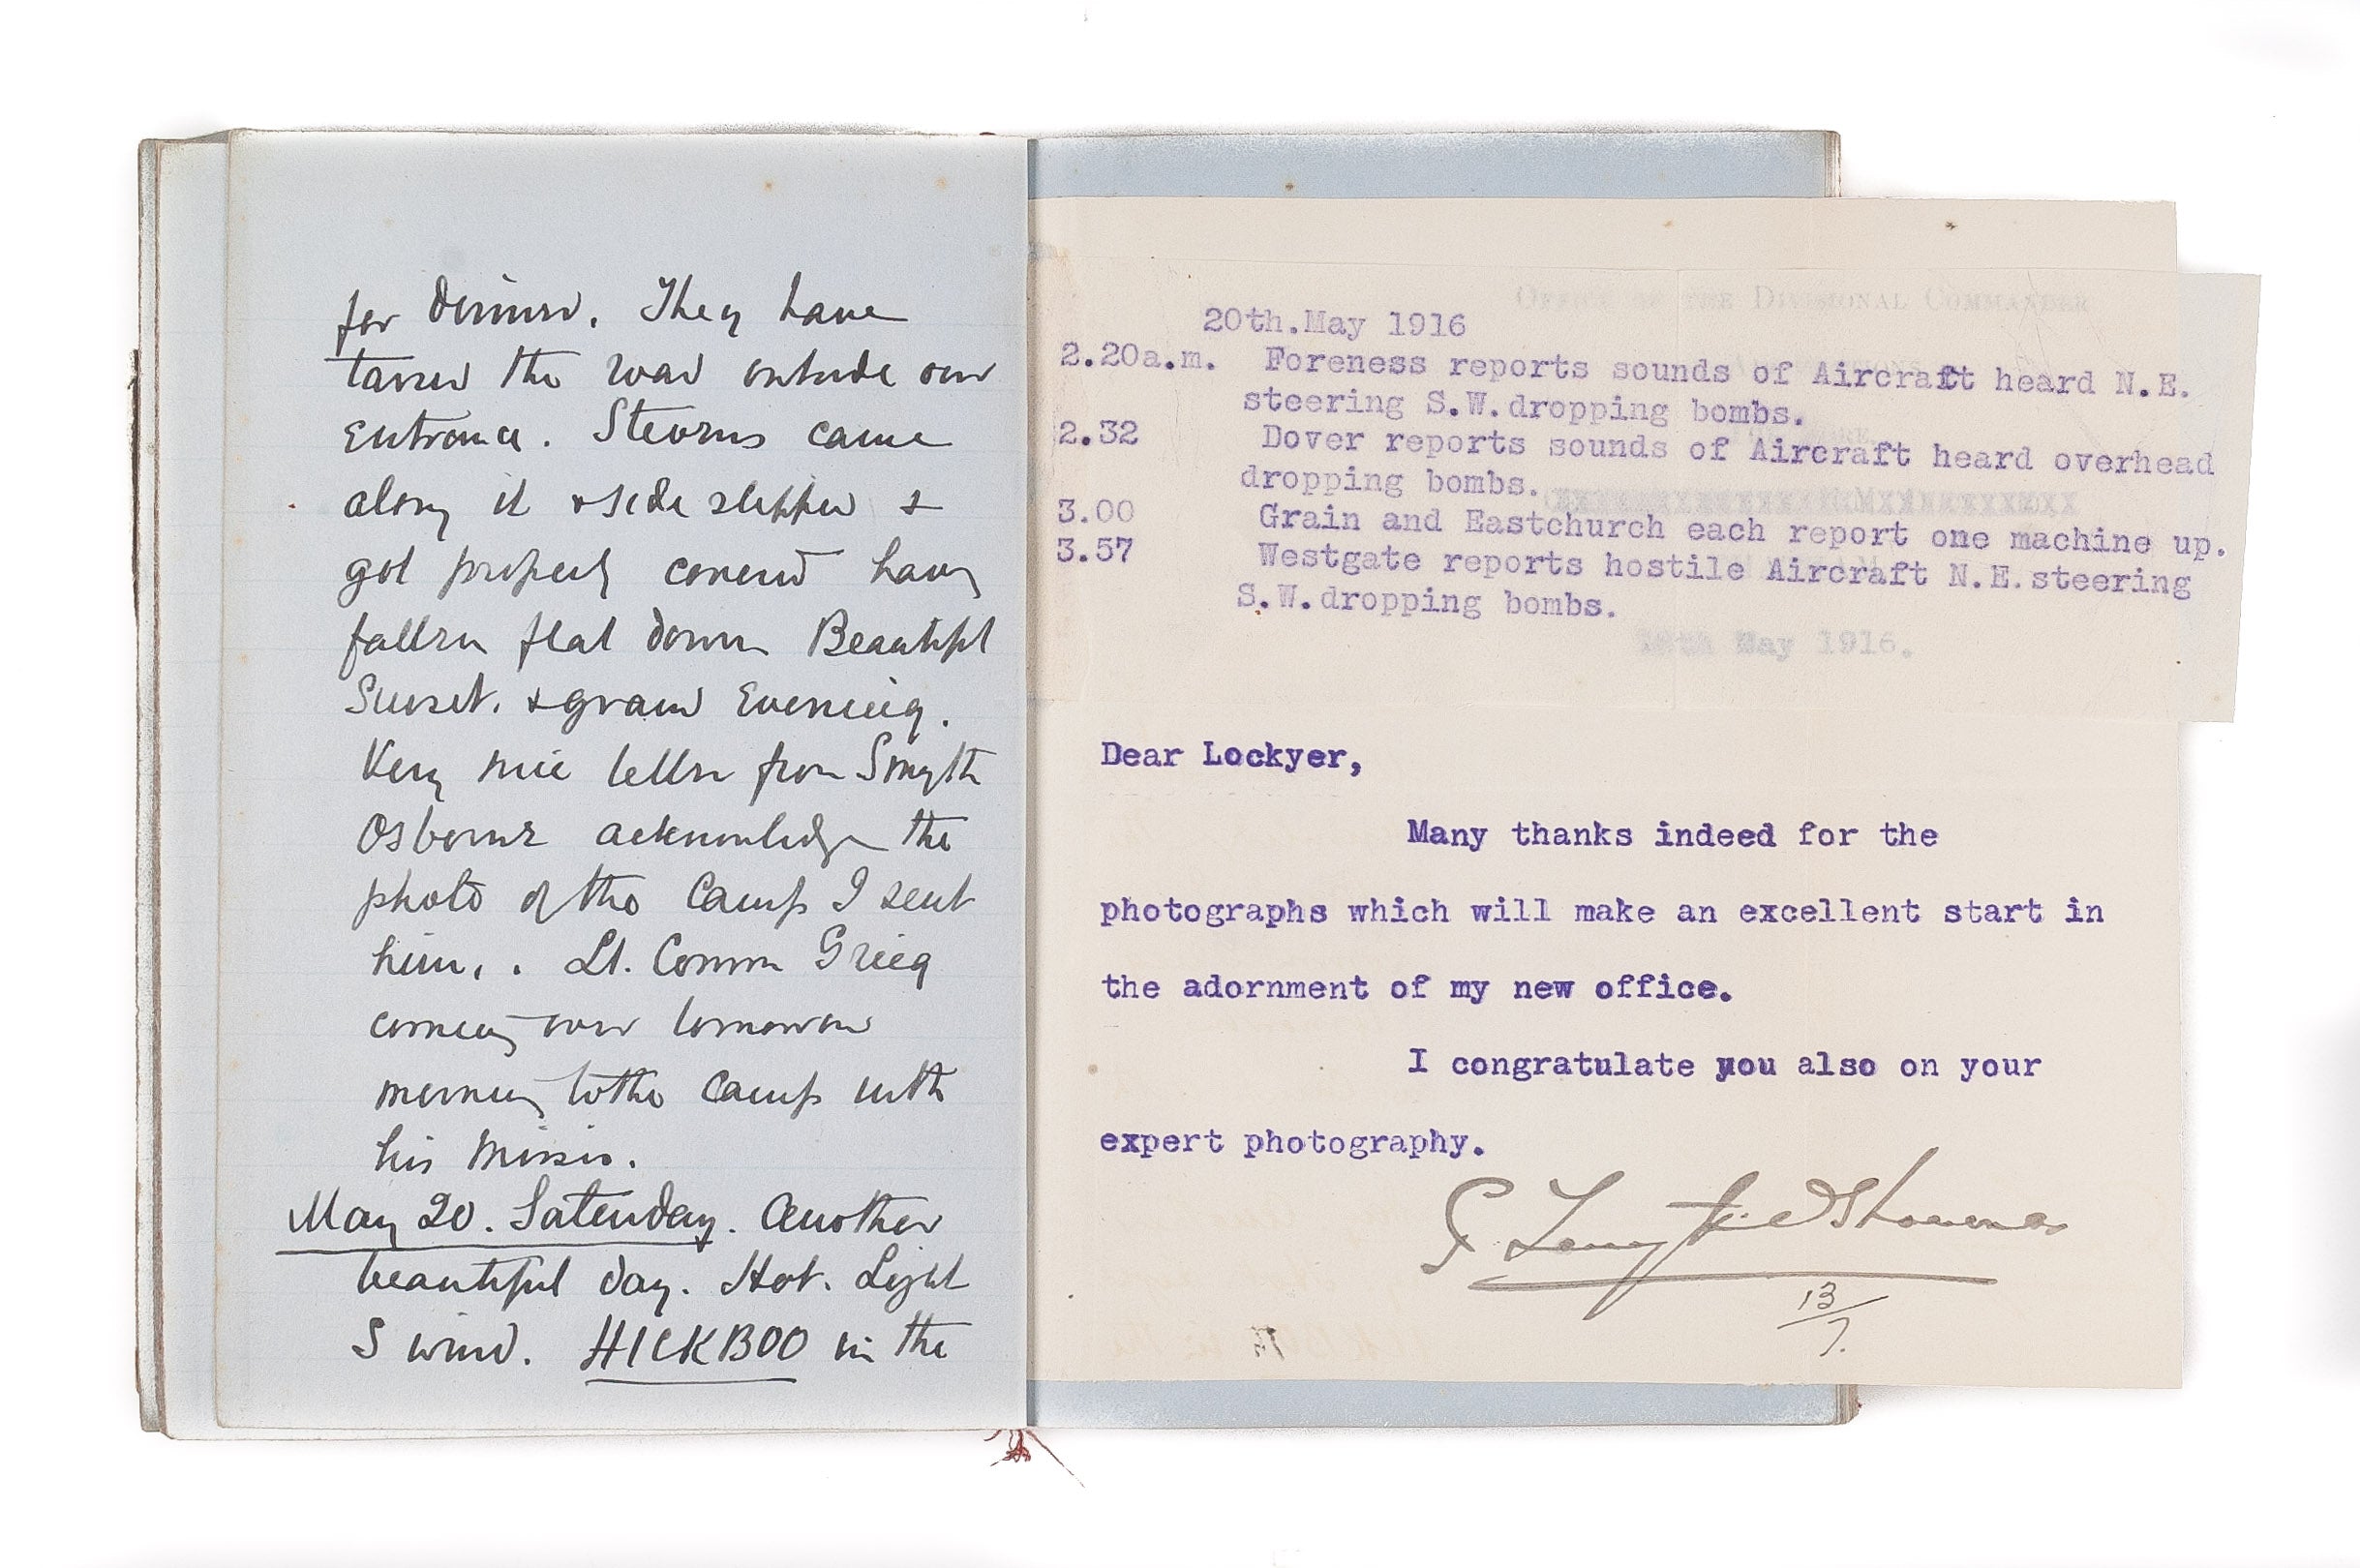 for dinner. They have
tarred the road outside our
Entrance. Stevens came
along it & side slipped &
got properly covered having
fallen flat down Beautiful
Sunset. & grand Evening.
Very nice letter from Smyth
Osborne acknowledge the
photo of the Camp I sent
him. . Lt. Comm Grieg
coming over tomorrow
morning to the Camp with
his Missis.
May 20. Saturday. Another
beautiful day. Hot. Light
S wind. HICKBOO in the
OFFICE OF THE DIVISIONAL COMMANDER
20th.May 1916
2.20a.m. Foreness reports sounds of Aircraft heard N.E.
steering S.W.dropping bombs.
2.32 Dover reports sounds of Aircraft heard overhead
dropping bombs.
3.00 Grain and Eastchurch each report one machine up.
3.57 Westgate reports hostile Aircraft N.E.steering
S.W.dropping bombs.
May 1916.
Dear Lockyer,
Many thanks indeed for the
photographs which will make an excellent start in
the adornment of my new office.
I congratulate you also on your
expert photography.
13/7.